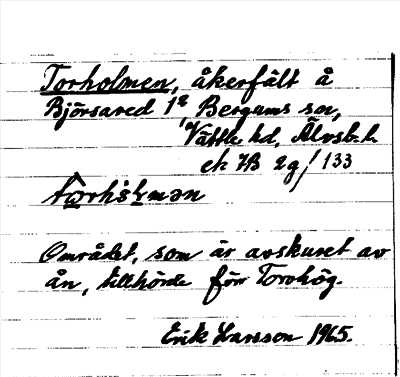 Torholmen, åkerfält å
Björsared 1:2, Bergums sn,
Vättle hd, Älvsb. l.
ek 7B 2g/133
Området, som är avskuret av
ån, tillhörde förr Torohög.
Erik Larsson 1965.